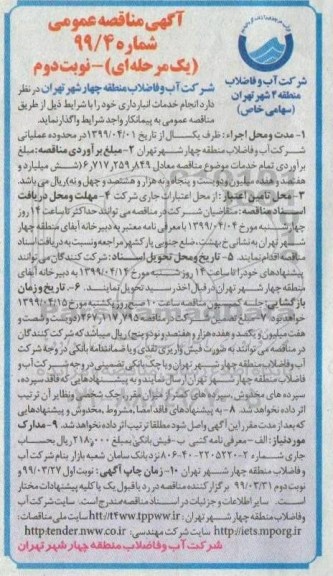 آگهی مناقصه عمومی
شماره ۹۹/۴
(یک مرحله ای) - نوبت دوم
شرکت آب و فاضلاب
منطقه ۴ شهر تهران
(سهامی خاص)
شرکت آب و فاضلاب منطقه چهار شهر تهران در نظر
دارد انجام خدمات انبارداری خود را با شرایط ذیل از طریق
مناقصه عمومی به پیمانکار واجد شرایط واگذار نماید.
۱- مدت و محل اجراء: ظرف یکسال از تاریخ ۱۳۹۹/۰۴/۰۱ در محدوده عملیاتی
شرکت آب و فاضلاب منطقه چهار شهر تهران ۲- مبلغ برآوردی مناقصه: مبلغ
برآوردی تمام خدمات موضوع مناقصه معادل ۶,۷۱۷,۲۵۹,۸۴۹ (شش میلیارد و
هفتصد و هفده میلیون و دویست و پنجاه و نه هزار و هشتصد و چهل و نه) ریال می باشد.
۳- محل تامین اعتبار: از محل اعتبارات جاری شرکت ۴- مهلت و محل دریافت
اسناد مناقصه: متقاضیان شرکت در مناقصه می توانند حداکثر تا ساعت ۱۴ روز
چهارشنبه مورخ ۱۳۹۹/۰۴/۰۴ با معرفی نامه معتبر به دبیرخانه آبفای منطقه چهار
شهر تهران به نشانی خ بهشت، ضلع جنوبی پارک شهر مراجعه و نسبت به دریافت اسناد
مناقصه اقدام نمایند. ۵- تاریخ و محل تحویل اسناد: شرکت کنندگان می توانند
پیشنهادهای خود را تا ساعت ۱۴ روز شنبه مورخ ۱۳۹۹/۰۴/۱۴ به دبیرخانه آبفای
منطقه چهار شهر تهران در قبال اخذ رسید تحویل نمایند. ۶- تاریخ و زمان
بازگشایی: جلسه کمیسیون مناقصه ساعت ۱۰ صبح روز یکشنبه مورخ ۱۳۹۹/۰۴/۱۵
خواهد بود. ۷-
هفت میلیون و یکصد و هفده هزار و هفتصد و نود و پنج) ریال میباشد که شرکت کنندگان
در مناقصه می توانند به صورت فیش واریزی نقدی و یا ضمانتنامه بانکی در وجه شرکت
آب و فاضلاب منطقه چهار شهر تهران و یا چک بانکی تضمینی در وجه شرکت آب و
فاضلاب منطقه چهار شهر تهران ارسال نمایند و به پیشنهادهایی که فاقد سپرده،
سپرده های مخدوش، سپرده های کمتر از میزان مقرر، چک شخصی و نظایر آن ترتیب
اثر داده نخواهد شد. ۸- به پیشنهادهای فاقد امضا، مشروط، مخدوش و پیشنهادهایی
که بعد از مدت مقرر این آگهی واصل شود مطلقا ترتیب اثر داده نخواهد شد. ۹- مدارک
مورد نیاز: الف- معرفی نامه کتبی ب- فیش بانکی بمبلغ ۲۱۸,۰۰۰ ریال بحساب
جاری شماره ۲-۲۲۰۵۲۲۰-۴۰-۸۰۶ نزد بانک سامان شعبه بازار بنام شرکت آب
و فاضلاب منطقه چهار شهر تهران ۱۰- زمان چاپ آگهی: نوبت اول ۹۹/۰۳/۲۷
نوبت دوم ۹۹/۰۳/۳۱ برگزار کننده مناقصه در رد یا قبول یک یا کلیه پیشنهادات مختار
است. سایر اطلاعات و جزئیات در اسناد مناقصه مندرج است. سایت شرکت آب
و فاضلاب منطقه چهار شهر تهران: htt://t4ww.tppww.ir سایت ملی مناقصات:
http://iets.mporg.ir سایت شرکت مهندسی: http:tender.nww.co.ir
شرکت آب و فاضلاب منطقه چهار شهر تهران